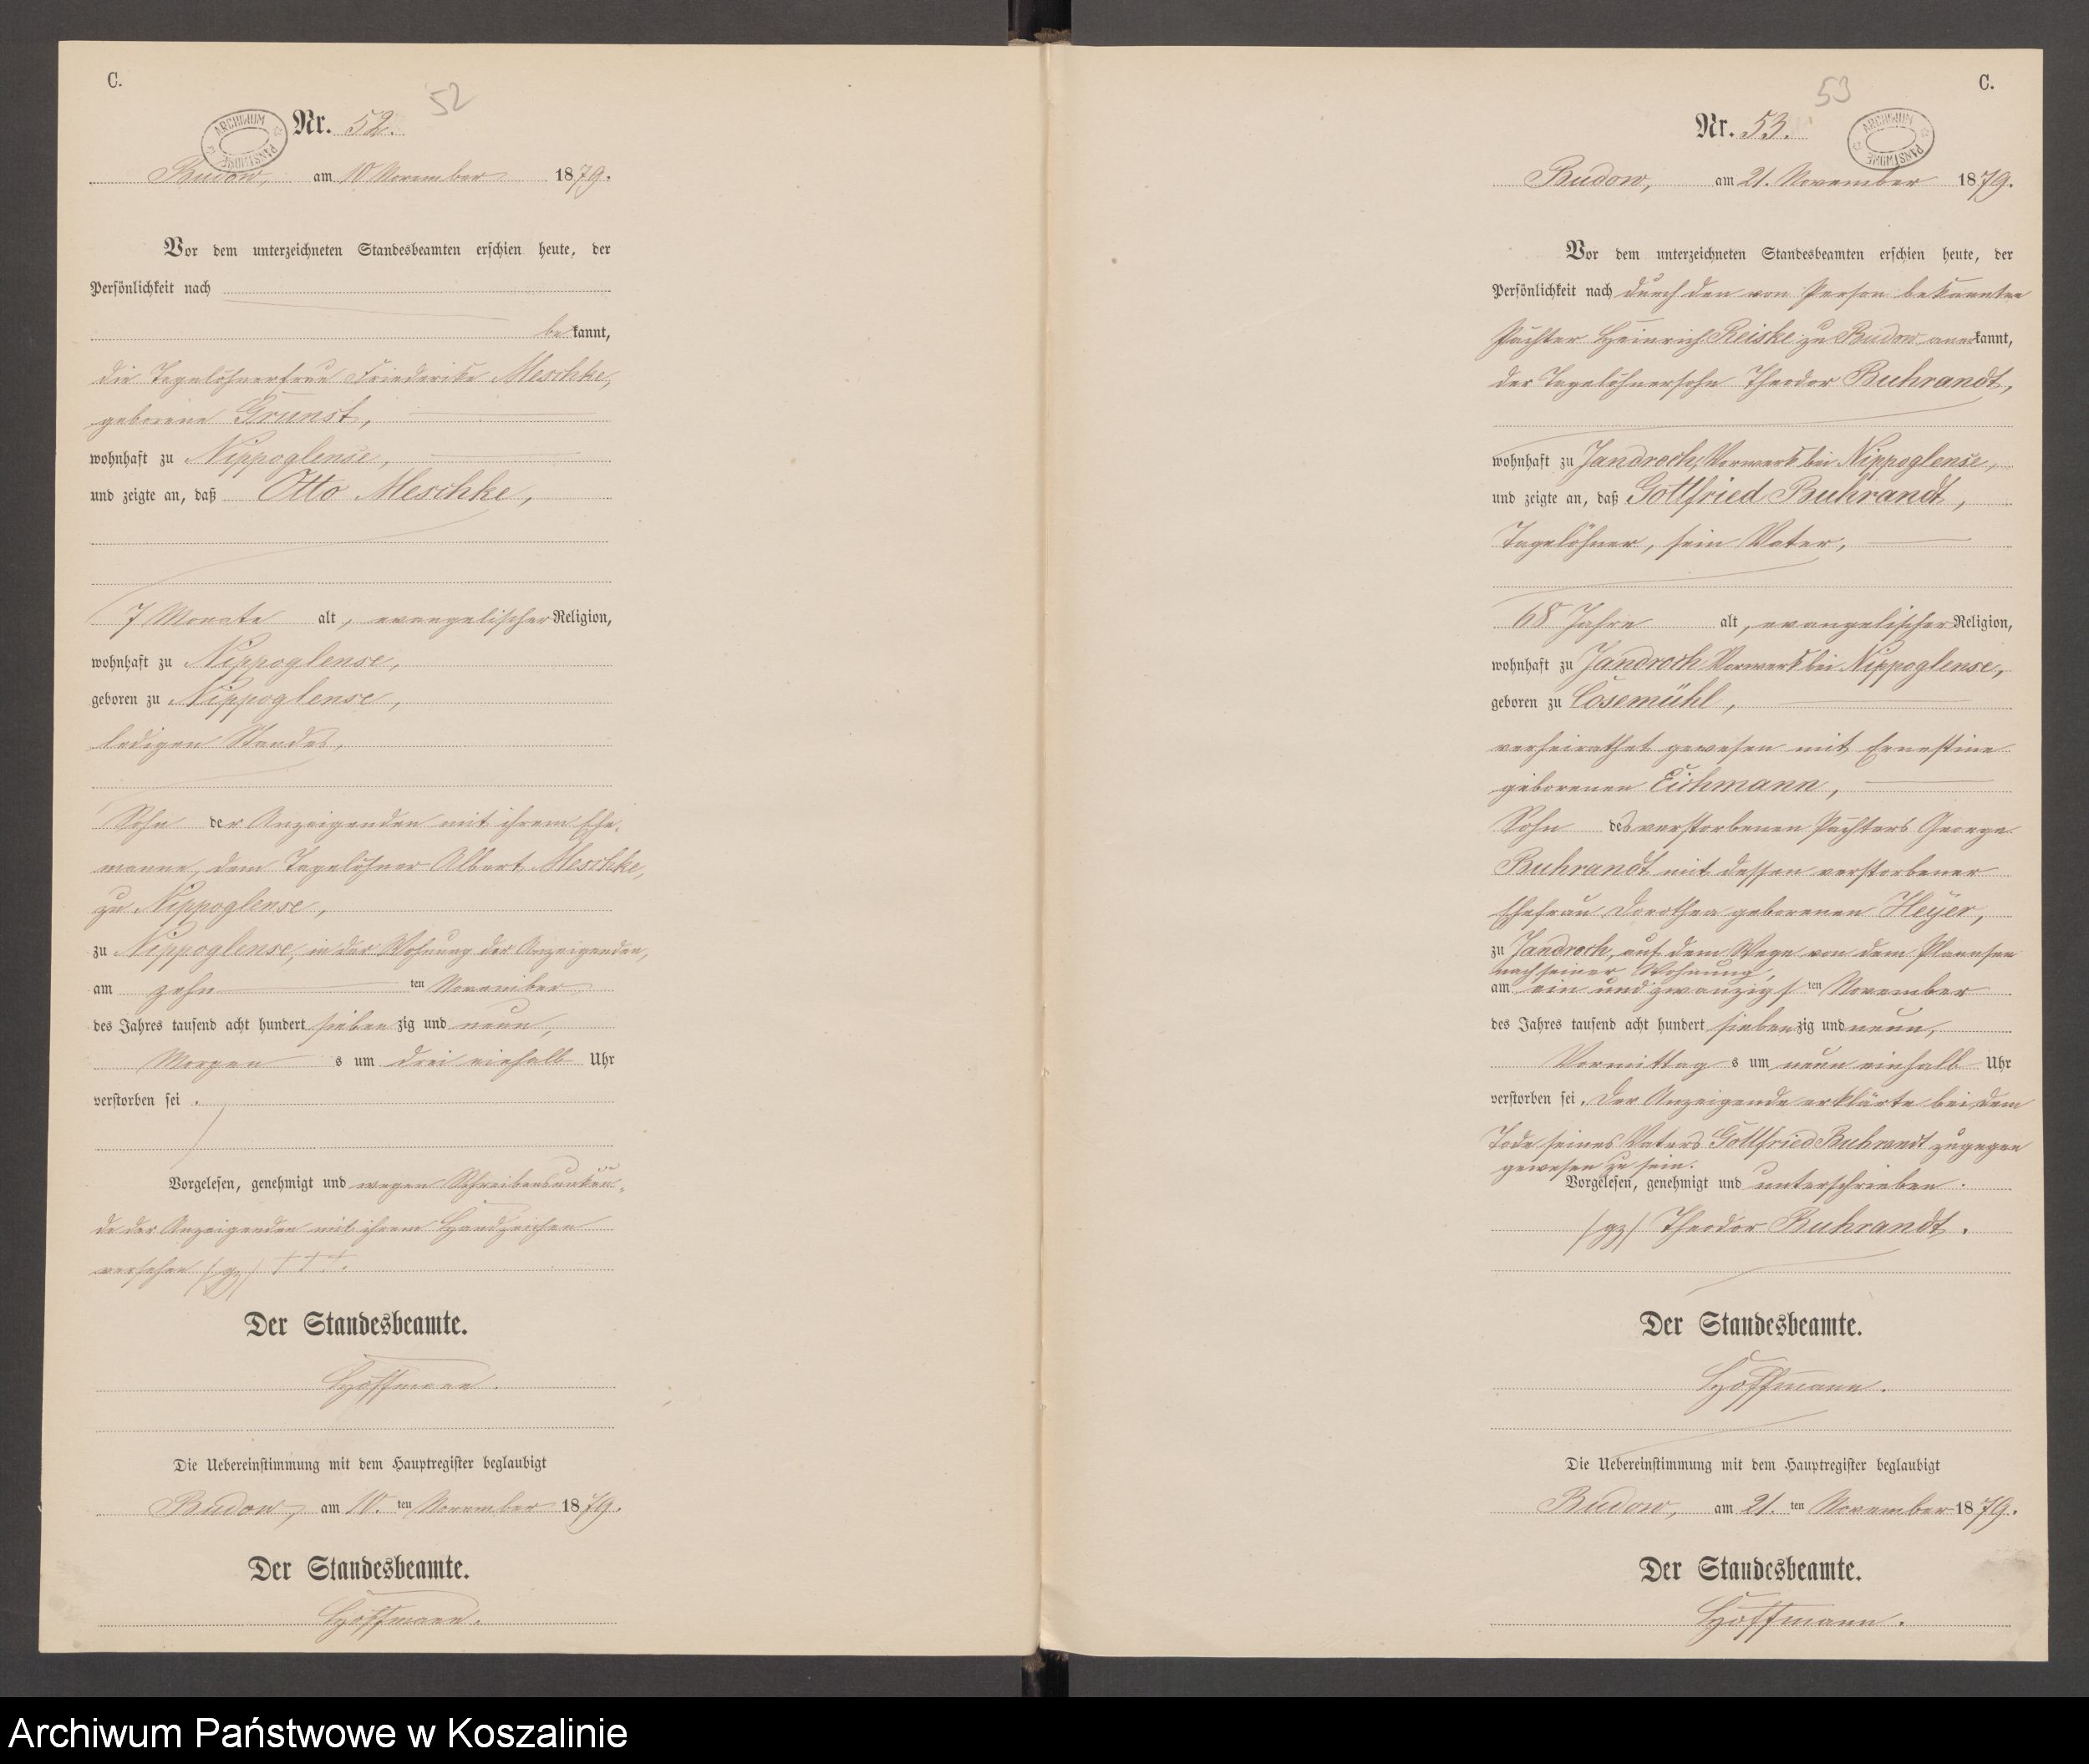 C.
52
Nr. 52.
ARCHIWUM PAŃSTWOWE
Budow, am 10 November 1879.
Vor dem unterzeichneten Standesbeamten erschien heute, der
Persönlichkeit nach
bekannt,
die Tagelöhnerfrau Friederike Meschke,
geborene Grunst,
wohnhaft zu Nippoglense,
und zeigte an, daß Otto Meschke,
7 Monate alt, evangelischer Religion,
wohnhaft zu Nippoglense,
geboren zu Nippoglense,
ledigen Standes,
Sohn der Anzeigenden mit ihrem Ehe-
manne, dem Tagelöhner Albert Meschke,
zu Nippoglense,
zu Nippoglense, in der Wohnung der Anzeigenden,
am zehn ten November
des Jahres tausend acht hundert siebenzig und neun,
Morgens um drei einhalb Uhr
verstorben sei.
Vorgelesen, genehmigt und wegen Schreibensunkun-
de der Anzeigenden mit ihrem Handzeichen
versehen (gz) +++.
Der Standesbeamte.
Hoffmann.
Die Uebereinstimmung mit dem Hauptregister beglaubigt
Budow, am 10. ten November 1879.
Der Standesbeamte.
Hoffmann.
C.
53
Nr. 53.
ARCHIWUM PAŃSTWOWE
Budow, am 21. November 1879.
Vor dem unterzeichneten Standesbeamten erschien heute, der
Persönlichkeit nach durch den von Person bekannten
Pächter Heinrich Reiske zu Budow anerkannt,
der Tagelöhnersohn Theodor Buhrandt,
wohnhaft zu Jandroch, Vorwerk bei Nippoglense,
und zeigte an, daß Gottfried Buhrandt,
Tagelöhner, sein Vater,
68 Jahre alt, evangelischer Religion,
wohnhaft zu Jandroch Vorwerk bei Nippoglense,
geboren zu Cosemühl,
verheirathet gewesen mit Ernestine
geborenen Eichmann,
Sohn des verstorbenen Pächters George
Buhrandt mit dessen verstorbener
Ehefrau Dorothea geborenen Heyer,
zu Jandroch, auf dem Wege von dem
nach seiner Wohnung,
am ein und zwanzigsten November
des Jahres tausend acht hundert siebenzig und neun,
Vormittags um neun einhalb Uhr
verstorben sei. Der Anzeigende erklärte bei dem
Tode seines Vaters Gottfried Buhrandt zugegen
gewesen zu sein.
Vorgelesen, genehmigt und unterschrieben.
(gz) Theodor Buhrandt.
Der Standesbeamte.
Hoffmann.
Die Uebereinstimmung mit dem Hauptregister beglaubigt
Budow, am 21. ten November 1879.
Der Standesbeamte.
Hoffmann.
Archiwum Państwowe w Koszalinie